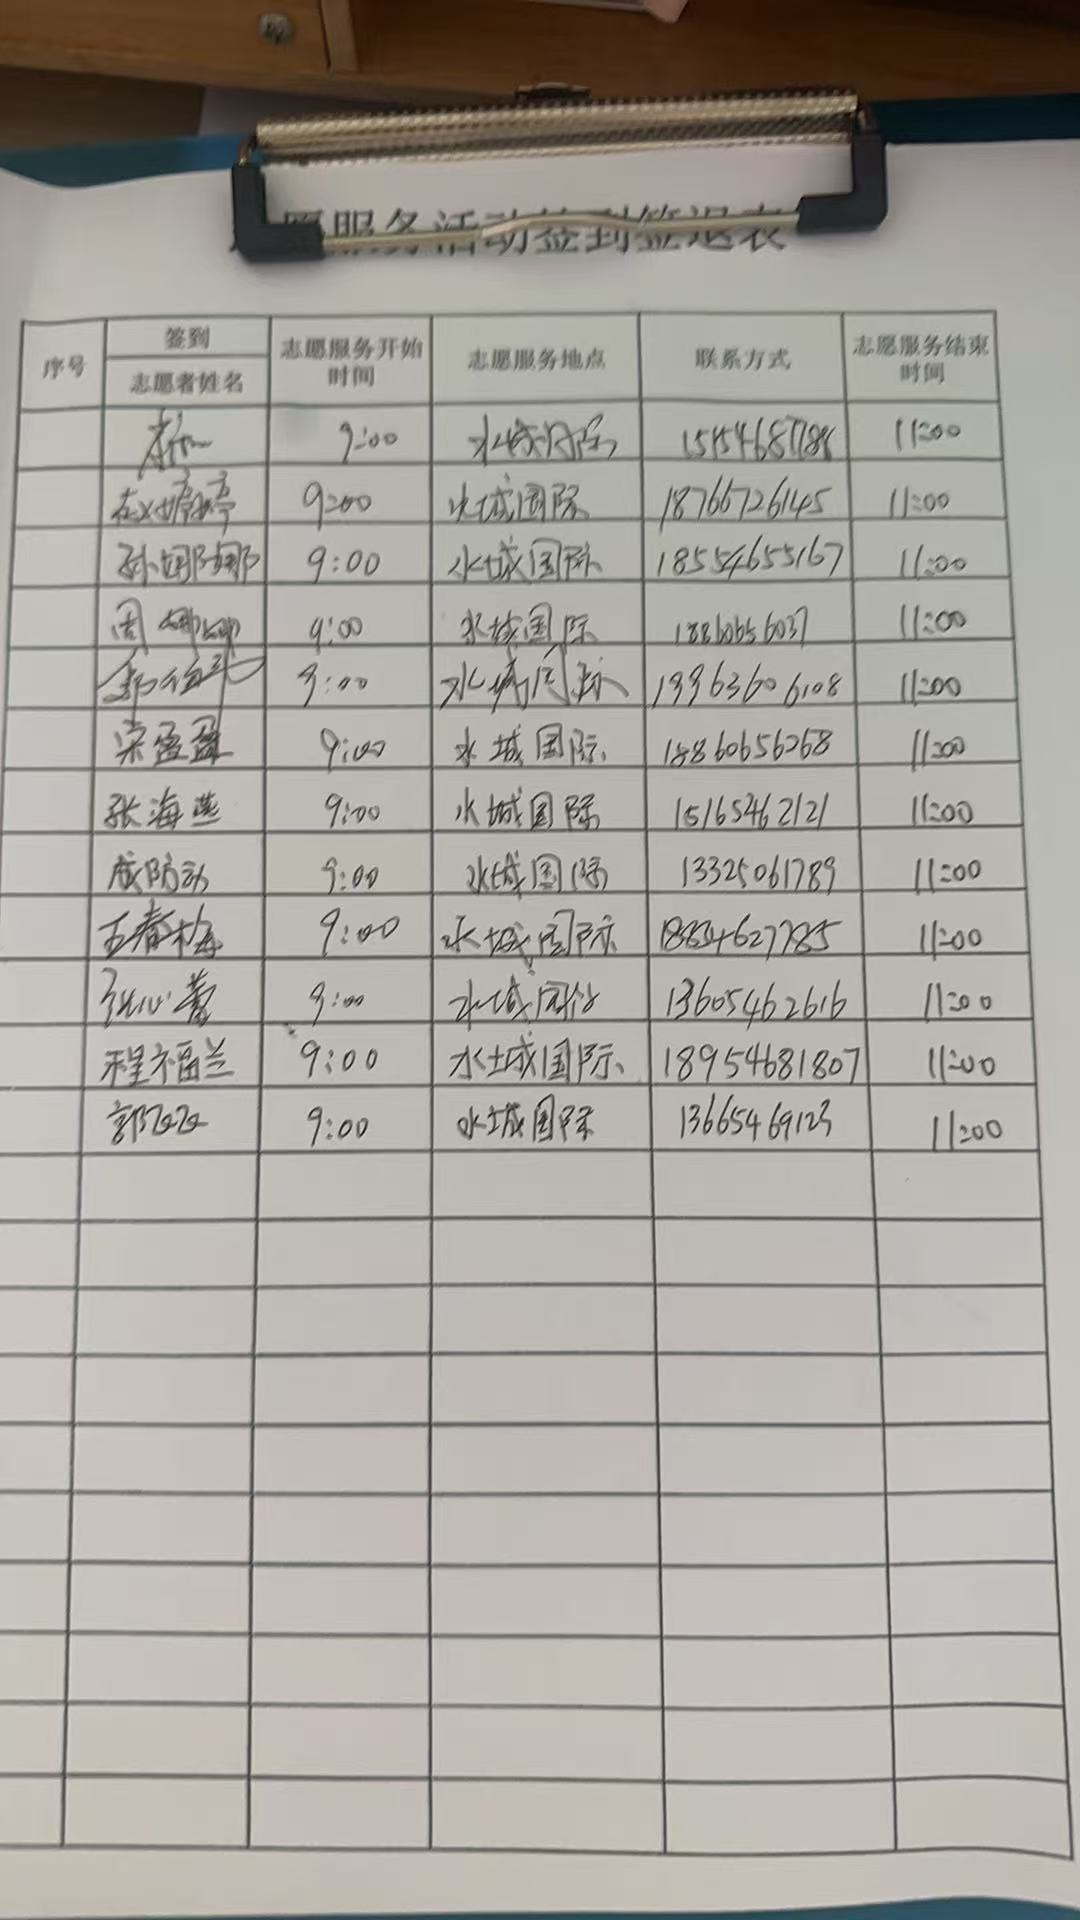 愿服务活动签到签退表
序号 签到 志愿者姓名 志愿服务开始时间 志愿服务地点 联系方式 志愿服务结束时间
9:00 水城国际 11:00
赵婷婷 9:00 水城国际 18766726145 11:00
孙娜娜 9:00 水城国际 18554655167 11:00
周娜娜 9:00 水城国际 18860656037 11:00
9:00 水城国际 13963606108 11:00
宋盈盈 9:00 水城国际 18860656268 11:00
张海燕 9:00 水城国际 15165462121 11:00
成防动 9:00 水城国际 13325061789 11:00
王春梅 9:00 水城国际 11:00
张心蕾 9:00 水城国际 13605462616 11:00
程福兰 9:00 水城国际 18954681807 11:00
郭 9:00 水城国际 13665469123 11:00